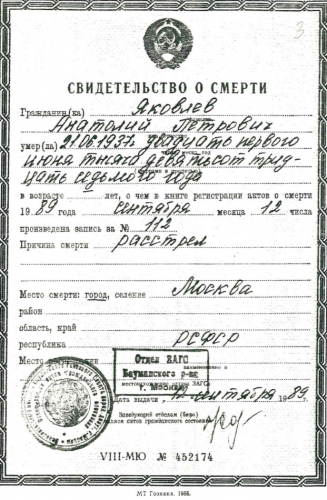 3
СВИДЕТЕЛЬСТВО О СМЕРТИ
Гражданин(ка) Яковлев
Анатолий Петрович
умер(ла) 21.06.1937 двадцать первого
июня тысяча девятьсот трид-
цать седьмого года
в возрасте лет, о чем в книге регистрации актов о смерти
1989 года сентября месяца 12 числа
произведена запись за № 112
Причина смерти расстрел
Место смерти: город, селение Москва
район
область, край
республика РСФСР
Место регистрации Отдел ЗАГС
Бауманского р-на
г. Москвы
Дата выдачи 12 сентября 1989.
Заведующий отделом (бюро)
записи актов гражданского состояния
VIII-МЮ № 452174
МТ Гознака. 1988.